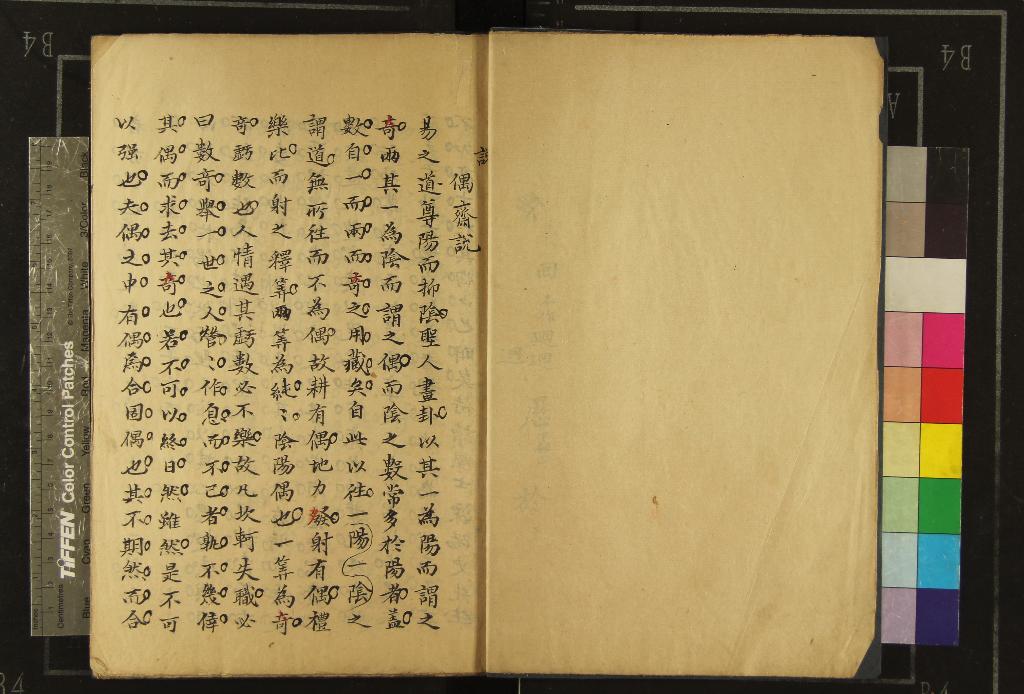 說
偶齋說
易之道尊陽而抑陰聖人畫卦以其一為陽而謂之
奇兩其一為陰而謂之偶而陰之數常多於陽者蓋
數自一而兩而奇之用藏矣自此以往一陽一陰之
謂道無所往而不為偶故耕有偶地力發射有偶禮
樂比而射之釋筭兩筭為純〻陰陽偶也一筭為奇
奇虧數也人情遇其虧數必不樂故凡坎軻失職必
曰數奇舉一世之人營〻作息而不已者孰不幾倖
其偶而求去其奇也若不可以終日然雖然是不可
以强也夫偶之中有偶焉合固偶也其不期然而合
B4
B4
B4
B4
A
TIFFEN Color Control Patches
© The Tiffen Company, 2007
Centimetres
Inches
Blue
Cyan
Green
Yellow
Red
Magenta
White
3/Color
Black